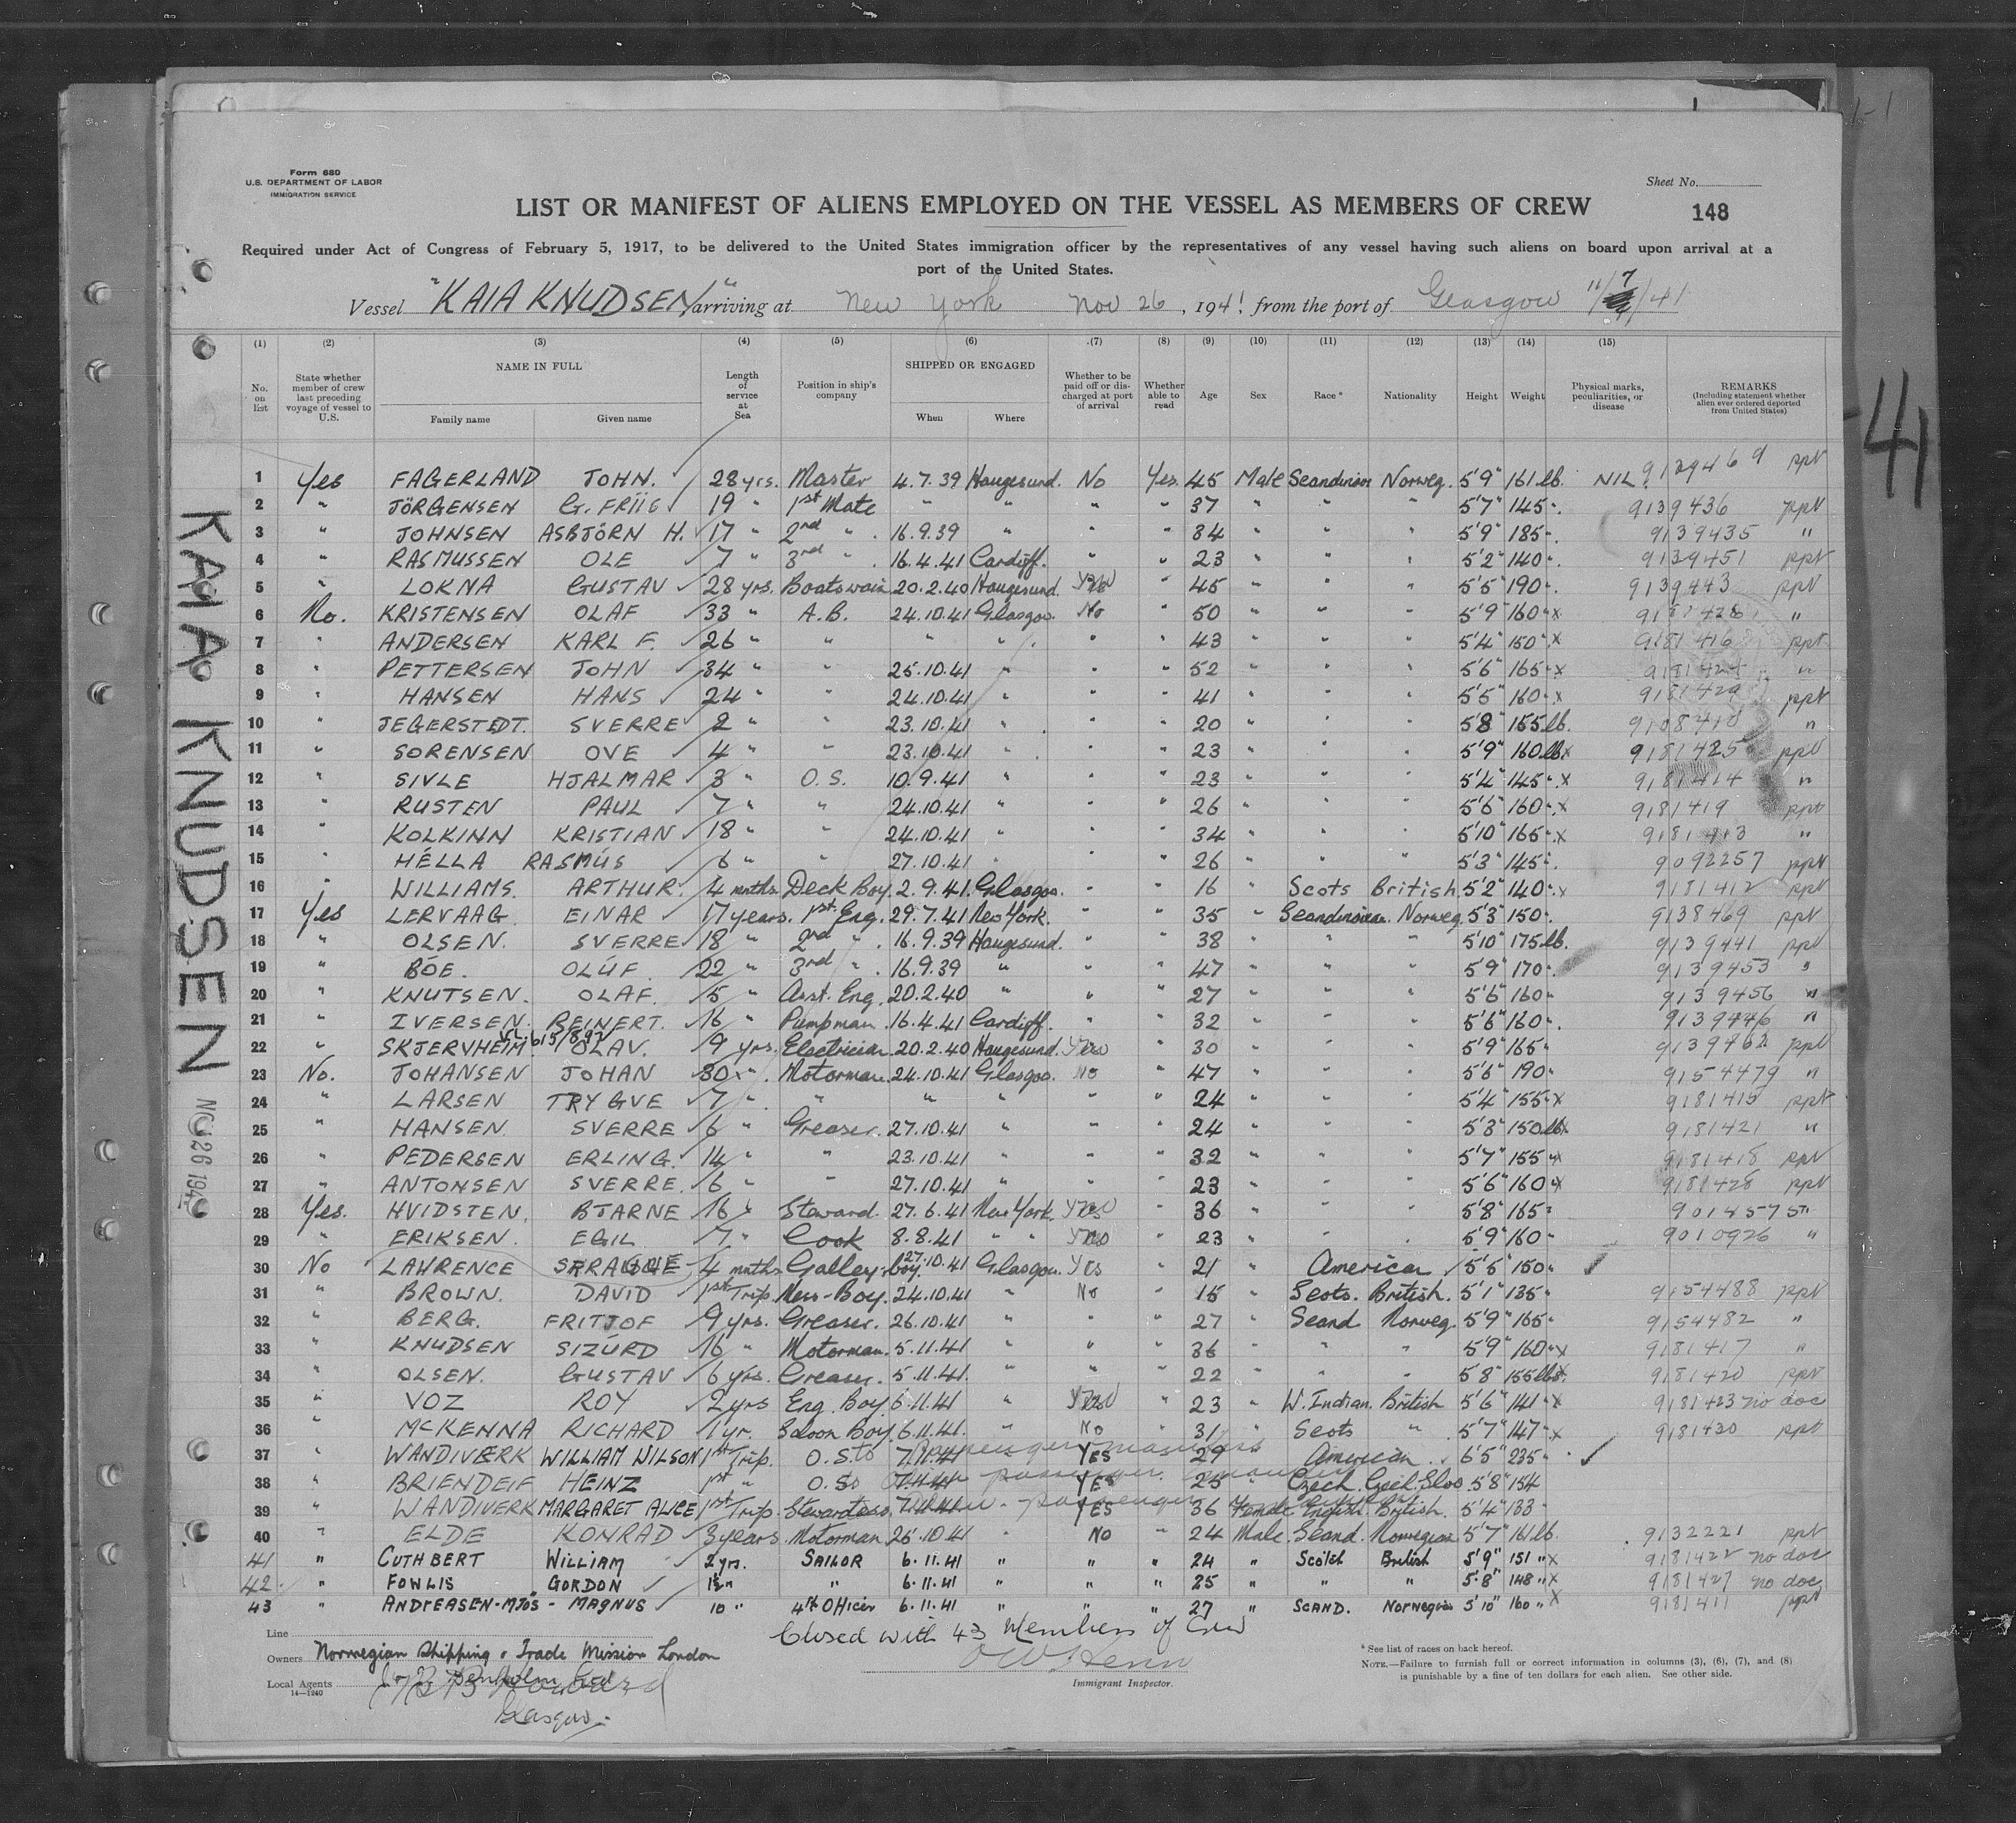 Form 680
U.S. DEPARTMENT OF LABOR
IMMIGRATION SERVICE
Sheet No.
148
LIST OR MANIFEST OF ALIENS EMPLOYED ON THE VESSEL AS MEMBERS OF CREW
Required under Act of Congress of February 5, 1917, to be delivered to the United States immigration officer by the representatives of any vessel having such aliens on board upon arrival at a
port of the United States.
Vessel "KAIA KNUDSEN" arriving at New York Nov 26, 1941 from the port of Glasgow 11/7/41
(1) (2) (3) (4) (5) (6) (7) (8) (9) (10) (11) (12) (13) (14) (15)
No. on list State whether member of crew last preceding voyage of vessel to U.S. NAME IN FULL Family name Given name Length of service at Sea Position in ship's company SHIPPED OR ENGAGED When Where Whether to be paid off or discharged at port of arrival Whether able to read Age Sex Race* Nationality Height Weight Physical marks, peculiarities, or disease REMARKS (Including statement whether alien ever ordered deported from United States)
1 Yes FAGERLAND JOHN. 28 yrs. Master 4.7.39 Haugesund. No Yes. 45 Male Scandinav Norweg. 5'9" 161 lb. NIL. 9129469 ppt
2 " JÖRGENSEN G. FRIIS 19 " 1st Mate " " " " 37 " " " 5'7" 145 ". 9139436 ppt
3 " JOHNSEN ASBJÖRN H. 17 " 2nd " 16.9.39 " " " 34 " " " 5'9" 185 ". 9139435 "
4 " RASMUSSEN OLE 7 " 3rd " 16.4.41 Cardiff. " " 23 " " " 5'2" 140 ". 9139451 ppt
5 " LOKNA GUSTAV 28 yrs. Boatswain 20.2.40 Haugesund. " 45 " " " 5'5" 190 ". 9139443 ppt
6 No. KRISTENSEN OLAF 33 " A.B. 24.10.41 Glasgow. No " 50 " " " 5'9" 160 " x "
7 " ANDERSEN KARL F. 26 " " " " " " 43 " " " 5'4" 150 " x 9181416 ppt
8 " PETTERSEN JOHN 34 " " 25.10.41 " " " 52 " " " 5'6" 165 " x "
9 " HANSEN HANS 24 " " 24.10.41 " " " 41 " " " 5'5" 160 " x 9181429 ppt
10 " JEGERSTEDT. SVERRE 2 " " 23.10.41 " " " 20 " " " 5'8" 155 lb. "
11 " SORENSEN OVE 4 " " 23.10.41 " " " 23 " " " 5'9" 160 lb x 9181425 ppt
12 " SIVLE HJALMAR 3 " O.S. 10.9.41 " " " 23 " " " 5'4" 145 " x 9181414 "
13 " RUSTEN PAUL 7 " " 24.10.41 " " " 26 " " " 5'6" 160 " x 9181419 ppt
14 " KOLKINN KRISTIAN 18 " " 24.10.41 " " 34 " " " 5'10" 165 " x 9181413 "
15 " HÉLLA RASMÚS 6 " " 27.10.41 " " " 26 " " " 5'3" 145 ". 9092257 ppt
16 " WILLIAMS. ARTHUR. 4 mnths. Deck Boy. 2.9.41. Glasgow. " " 16 " Scots British. 5'2" 140 " x 9181412 ppt
17 Yes LERVAAG. EINAR 17 years. 1st Eng. 29.7.41 New York. " " 35 " Scandinavian. Norweg. 5'3" 150 ". 9138469 ppt
18 " OLSEN. SVERRE 18 " 2nd " 16.9.39 Haugesund. " " 38 " " " 5'10" 175 lb. 9139441 ppt
19 " BÖE. OLÚF. 22 " 3rd " 16.9.39 " " " 47 " " " 5'9" 170 ". 9139453 "
20 " KNUTSEN. OLAF. 5 " Asst. Eng. 20.2.40 " " " 27 " " " 5'6" 160 " 9139456 "
21 " IVERSEN. REINERT. 16 " Pumpman. 16.4.41 Cardiff. " " 32 " " " 5'6" 160 ". 9139446 "
22 " SKJERVHEIM OLAV. 9 yrs. Electrician. 20.2.40 Haugesund. " 30 " " " 5'9" 165 " 9139462 ppt
23 No. JOHANSEN JOHAN 30 " Motorman. 24.10.41 Glasgow. No " 47 " " " 5'6" 190 " 9154479 "
24 " LARSEN TRYGVE 7 " " " " " " 24 " " " 5'4" 155 " x 9181415 ppt
25 " HANSEN. SVERRE 6 " Greaser. 27.10.41 " " " 24 " " " 5'3" 150 lb x 9181421 "
26 " PEDERSEN ERLING. 14 " " 23.10.41 " " " 32 " " " 5'7" 155 " x 9181418 ppt
27 " ANTONSEN SVERRE. 6 " " 27.10.41 " " " 23 " " " 5'6" 160 " x 9181428 ppt
28 Yes. HVIDSTEN. BJARNE 16 " Steward. 27.6.41 New York. " 36 " " " 5'8" 165 " 9014575 "
29 " ERIKSEN. EGIL 7 " Cook 8.8.41 " " " 23 " " " 5'9" 160 " 9010926 "
30 No LAWRENCE SPRAGUE 4 mnths. Galley-boy. 27.10.41 Glasgow. Yes " 21 " American 5'5" 150 "
31 " BROWN. DAVID 1st Trip. Mess-Boy. 24.10.41 " No " 15 " Scots. British. 5'1" 135 " 9154488 ppt
32 " BERG. FRITJOF 9 yrs. Greaser. 26.10.41 " " " 27 " Scand Norweg. 5'9" 165 " 9154482 "
33 " KNUDSEN SIZÚRD 16 " Motorman. 5.11.41 " " " 36 " " " 5'9" 160 " x 9181417 "
34 " OLSEN. GUSTAV 6 yrs. Greaser. 5.11.41. " " " 22 " " " 5'8" 155 lbs x 9181420 ppt
35 " VOZ ROY 2 yrs Eng. Boy 6.11.41 " " 23 " W. Indian. British 5'6" 141 " x 9181423 no doc
36 " McKENNA RICHARD 1 yr. Saloon Boy 6.11.41. " No " 31 " Scots " 5'7" 147 " x 9181430 ppt
37 " WANDIVERK WILLIAM WILSON 1st Trip. O.S. 7.11.41 YES 29 American. 6'5" 235 "
38 " BRIENDEIF HEINZ 1st " O.S. 7.11.41 passenger YES 25 Czech. Czech. Slov. 5'8" 154
39 " WANDIVERK MARGARET ALICE 1st Trip. Stewardess 7.11.41 passenger YES 36 Female English. British. 5'4" 133 "
40 " ELDE KONRAD 3 years. Motorman 26.10.41 " No " 24 Male. Scand. Norwegian 5'7" 161 lb. 9132221 ppt
41 " CUTHBERT WILLIAM 2 yrs. SAILOR 6.11.41 " " " 24 " Scotch British 5'9" 151 " x 9181422 no doc
42. " FOWLIS GORDON 1½ " " 6.11.41 " " " 25 " " " 5'8" 148 " x 9181427 no doc
43 " ANDREASEN-MJÖS - MAGNUS 10 " 4th Officer 6.11.41 " " " 27 " SCAND. Norwegian 5'10" 160 " x 9181411 ppt
Closed with 43 Members of Crew
Line
Owners Norwegian Shipping & Trade Mission London
Local Agents
14—1240
Glasgow.
Immigrant Inspector.
* See list of races on back hereof.
NOTE.—Failure to furnish full or correct information in columns (3), (6), (7), and (8)
is punishable by a fine of ten dollars for each alien. See other side.
KAIA KNUDSEN
NOV 26 194
41